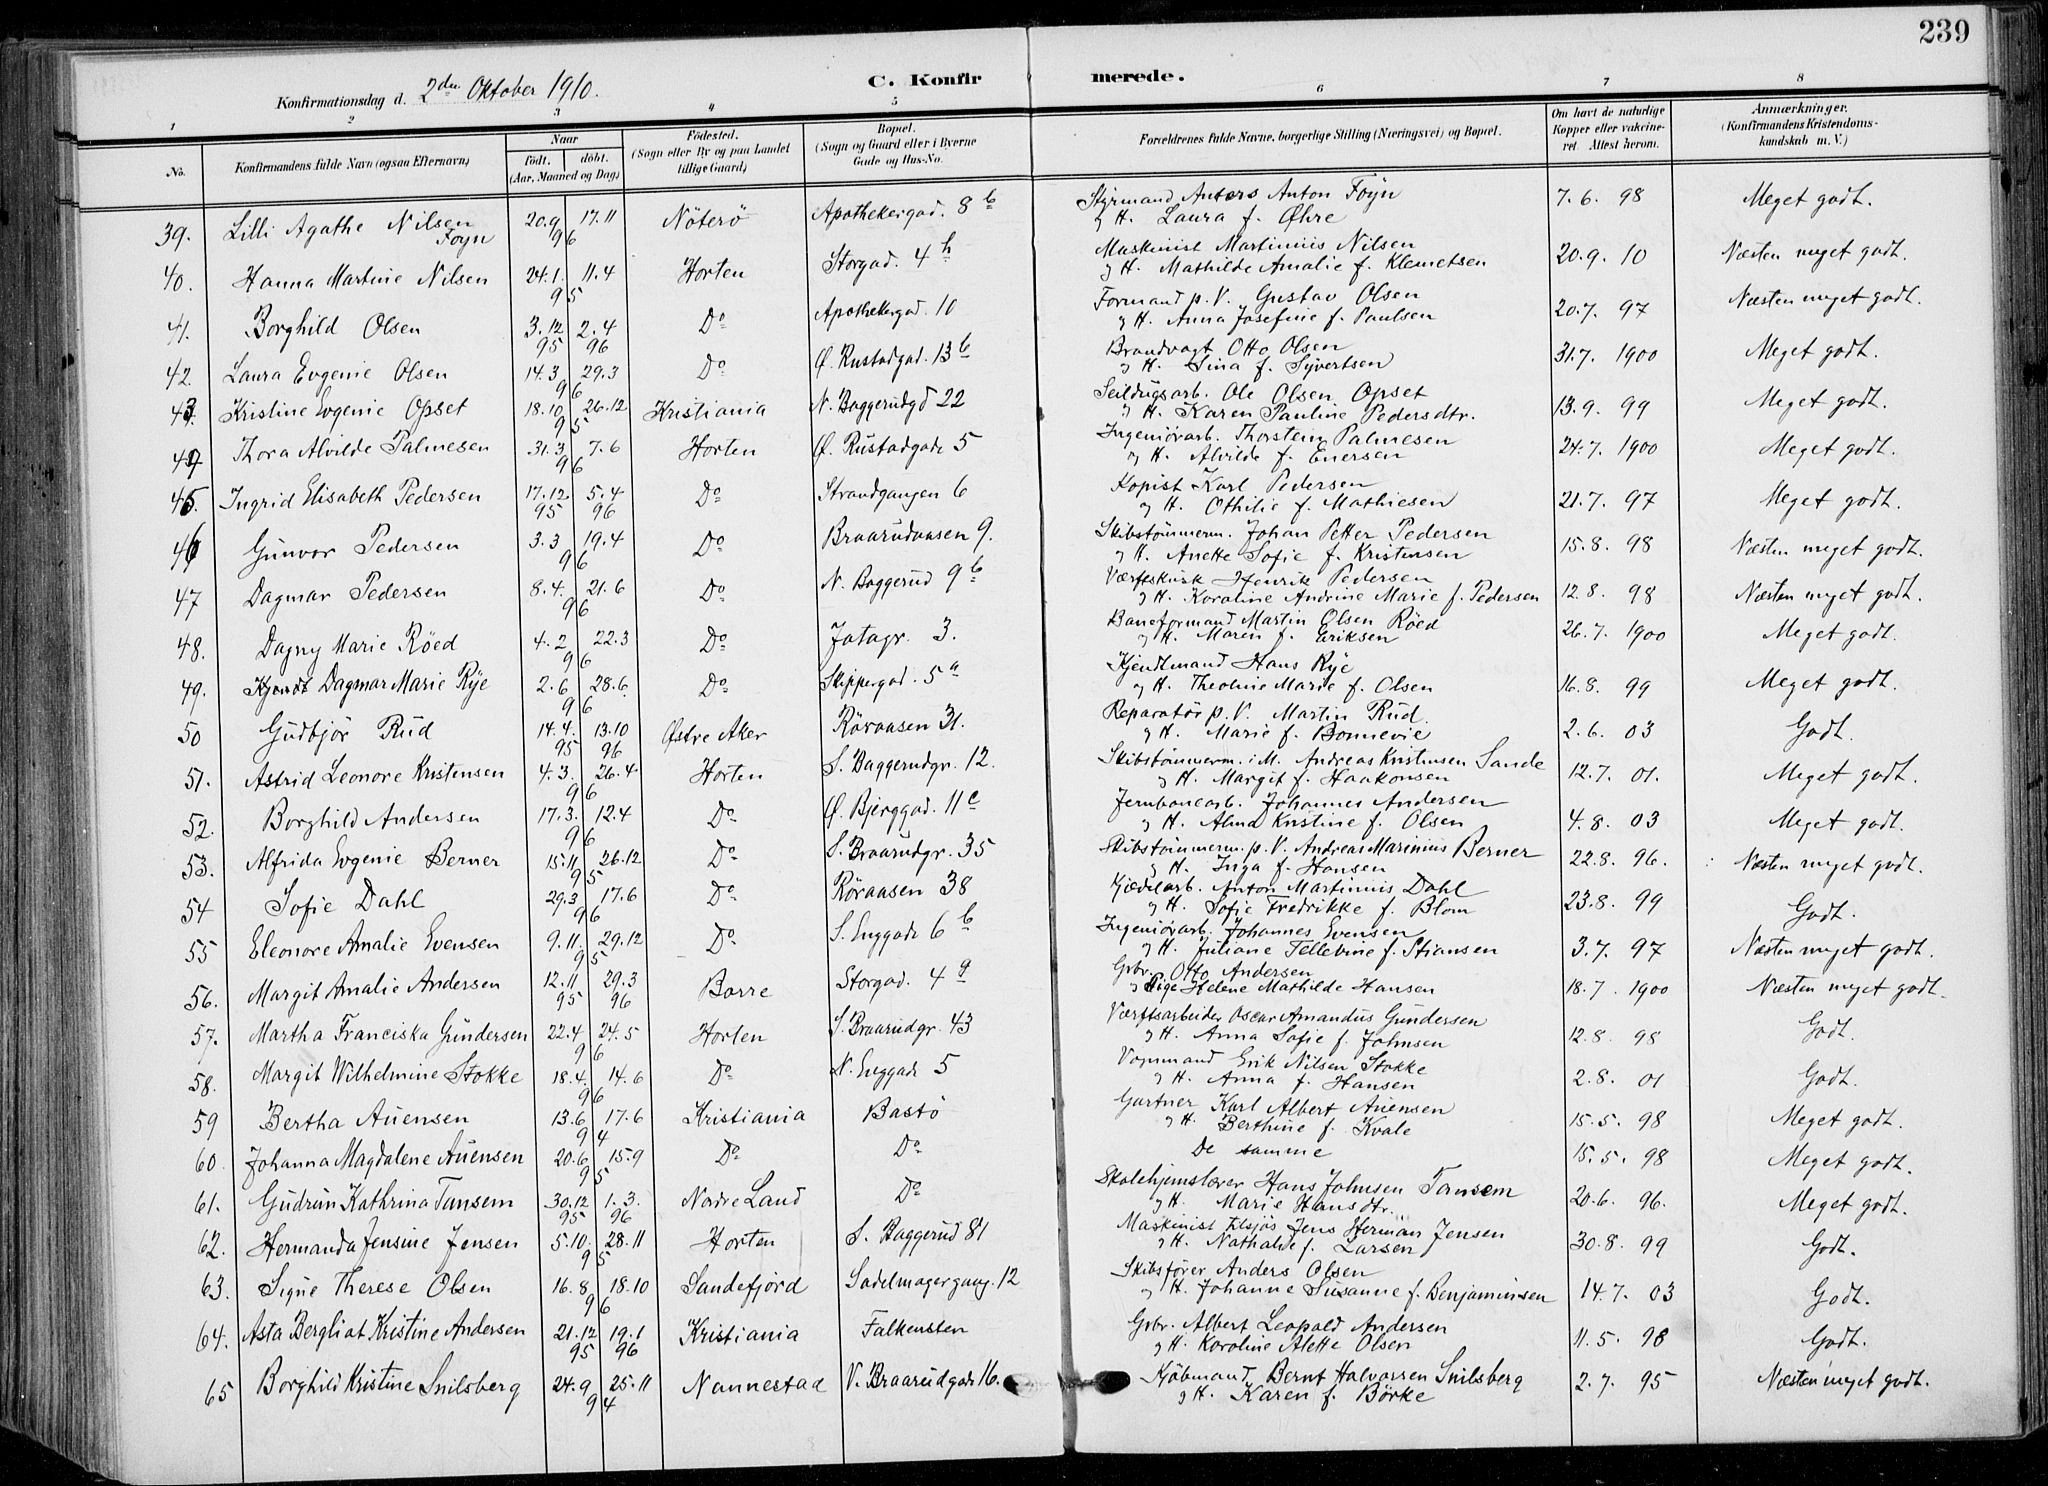 239
C. Konfirmerede.
Konfirmationsdag d. 2den Oktober 1910.
1 2 3 4 5 6 7 8
No. Konfirmandens fulde Navn (ogsaa Efternavn) Naar født, døbt. (Aar, Maaned og Dag) Fødested. (Sogn eller By og paa Landet tillige Gaard) Bopæl. (Sogn og Gaard eller i Byerne Gade og Hus-No. Forældrenes fulde Navne, borgerlige Stilling (Næringsvei) og Bopæl. Om havt de naturlige Kopper eller vakcineret. Attest herom. Anmærkninger. (Konfirmandens Kristendomskundskab m. V.)
39. Lilli Agathe Nilsen Foyn 20.9 17.11 96 Nöterö Apothekergad. 8 b Styrmand Anders Anton Föyn 7.6. 98 Meget godt.
og H. Laura f. Øhre
40. Hanna Martine Nilsen 24.1. 11.4 95 Horten Storgad. 4 b Maskinist Martinius Nilsen 20.9. 10 Næsten meget godt.
og H. Mathilde Amalie f. Klemetsen
41. Borghild Olsen 3.12 95 2.4 96 Do Apothekergad. 10 Formand p. V. Gustav Olsen 20.7. 97 Næsten meget godt.
og H. Anna Josefine f. Paulsen
42. Laura Evgenie Olsen 14.3 29.3 96 Do Ø. Rustadgad. 13 b Brandvagt Otto Olsen 31.7. 1900 Meget godt.
og H. Sina f. Syvertsen
43. Kristine Evgenie Opset 18.10 26.12 95 Kristiania N. Baggerudgd 22 Seildugsarb. Ole Olsen Opset 13.9. 99 Meget godt.
og H. Karen Pauline Pedersdtr.
44 Thora Alvilde Palmesen 31.3 7.6 96 Horten Ø. Rustadgade 5 Ingeniörarb. Thorstein Palmesen 24.7. 1900 Meget godt.
og H. Alvilde f. Enersen
45. Ingrid Elisabeth Pedersen 17.12 95 5.4 96 Do Strandgangen 6 Kopist Karl Pedersen 21.7. 97 Meget godt.
og H. Othilie f. Mathiesen
46 Gunvor Pedersen 3.3 19.4 96 Do Braarudaasen 9. Skibstömmerm. Johan Petter Pedersen 15.8. 98 Næsten meget godt.
og H. Anette Sofie f. Kristensen
47 Dagmar Pedersen 8.4. 21.6 96 Do N. Baggerud 9 b Værftskusk Henrik Pedersen 12.8. 98 Næsten meget godt.
og H. Koraline Andrine Marie f. Pedersen
48. Dagny Marie Röed 4.2 22.3 96 Do Jatagr. 3. Baneformand Martin Olsen Röed 26.7. 1900 Meget godt.
og H. Maren f. Eriksen
49. Dagmar Marie Rye 2.6 28.6. 96 Do Skippergad. 5 a Kjendtmand Hans Rye 16.8. 99 Meget godt.
og H. Theoline Marie f. Olsen
50 Gudbjör Rud 14.4. 95 13.10 96 Østre Aker Röraasen 31. Reparatör p. V. Martin Rud. 2.6. 03 Godt.
og H. Marie f. Bonnevie
51. Astrid Leonore Kristensen 4.3. 26.4 96 Horten S. Baggerudgr. 12. Skibstömmerm. i M. Andreas Kristensen Sande 12.7. 01. Meget godt.
og H. Margit f. Haakonsen
52. Borghild Andersen 17.3. 12.4 96 Do Ø. Bjerggad. 11 c Jernbanearb. Johannes Andersen 4.8. 03 Meget godt.
og H. Alma Kristine f. Olsen
53. Alfrida Evgenie Berner 15.11 26.12 95 Do S. Braarudgr. 35 Skibstömmerm. p. V. Andreas Marinius Berner 22.8. 96. Næsten meget godt.
og H. Inga f. Hansen
54 Sofie Dahl 29.3 17.6 96 Do Röraasen 38 Kjedelarb. Anton Martinius Dahl 23.8. 99 Godt.
og H. Sofie Fredrikke f. Blom
55 Eleonore Amalie Evensen 9.11. 29.12 95 Do S. Enggade 6 b Ingeniörarb. Johannes Evensen 3.7. 97 Næsten meget godt.
og H. Juliane Tellevine f. Stiansen
56. Margit Amalie Andersen 12.11 95 29.3 96 Borre Storgad. 4 a Grbr. Otto Andersen 18.7. 1900 Næsten meget godt.
og Pige Helene Mathilde Hansen
57. Martha Franciska Gundersen 22.4 24.5 96 Horten S. Braarudgr. 43 Værftsarbeider Oscar Amandus Gundersen 12.8. 98 Godt.
og H. Anna Sofie f. Johnsen
58. Margit Wilhelmine Stokke 18.4. 14.6 96 Do N. Enggade 5 Vognmand Erik Nilsen Stokke 2.8. 01 Godt.
og H. Anna f. Hansen
59 Bertha Auensen 13.6 17.6 94 Kristiania Bastö Gartner Karl Albert Auensen 15.5. 98 Meget godt.
og H. Berthine f. Kvale
60. Johanna Magdalene Auensen 20.6 15.9 95 Do Do De samme 15.5. 98 Meget godt.
61. Gudrun Kathrina Tansem 30.12 95 1.3. 96 Nordre Land Do Skolehjemslærer Hans Johnsen Tansem 20.6. 96. Meget godt.
og H. Marie Hansdtr.
62. Hermanda Jensine Jensen 5.10. 28.11 95 Horten S. Baggerud 81 Maskinist tilsjös Jens Herman Jensen 30.8. 99 Godt.
og H. Nathalie f. Larsen
63. Signe Therese Olsen 16.8 18.10 96 Sandefjord Sadelmagergang. 12 Skibsfører Anders Olsen 14.7. 03 Godt.
og H. Johanne Susanne f. Benjaminsen
64. Asta Bergliot Kristine Andersen 21.12 95 19.1 96 Kristiania Falkensten Grbr. Albert Leopold Andersen 11.5. 98 Godt.
og H. Karoline Alette Olsen
65 Borghild Kristine Snilsberg 24.9 25.11 94 Nannestad V. Braarudgade 16. Kjöbmand Bernt Halvorsen Snilsberg 2.7. 95 Næsten meget godt.
og H. Karen f. Börke